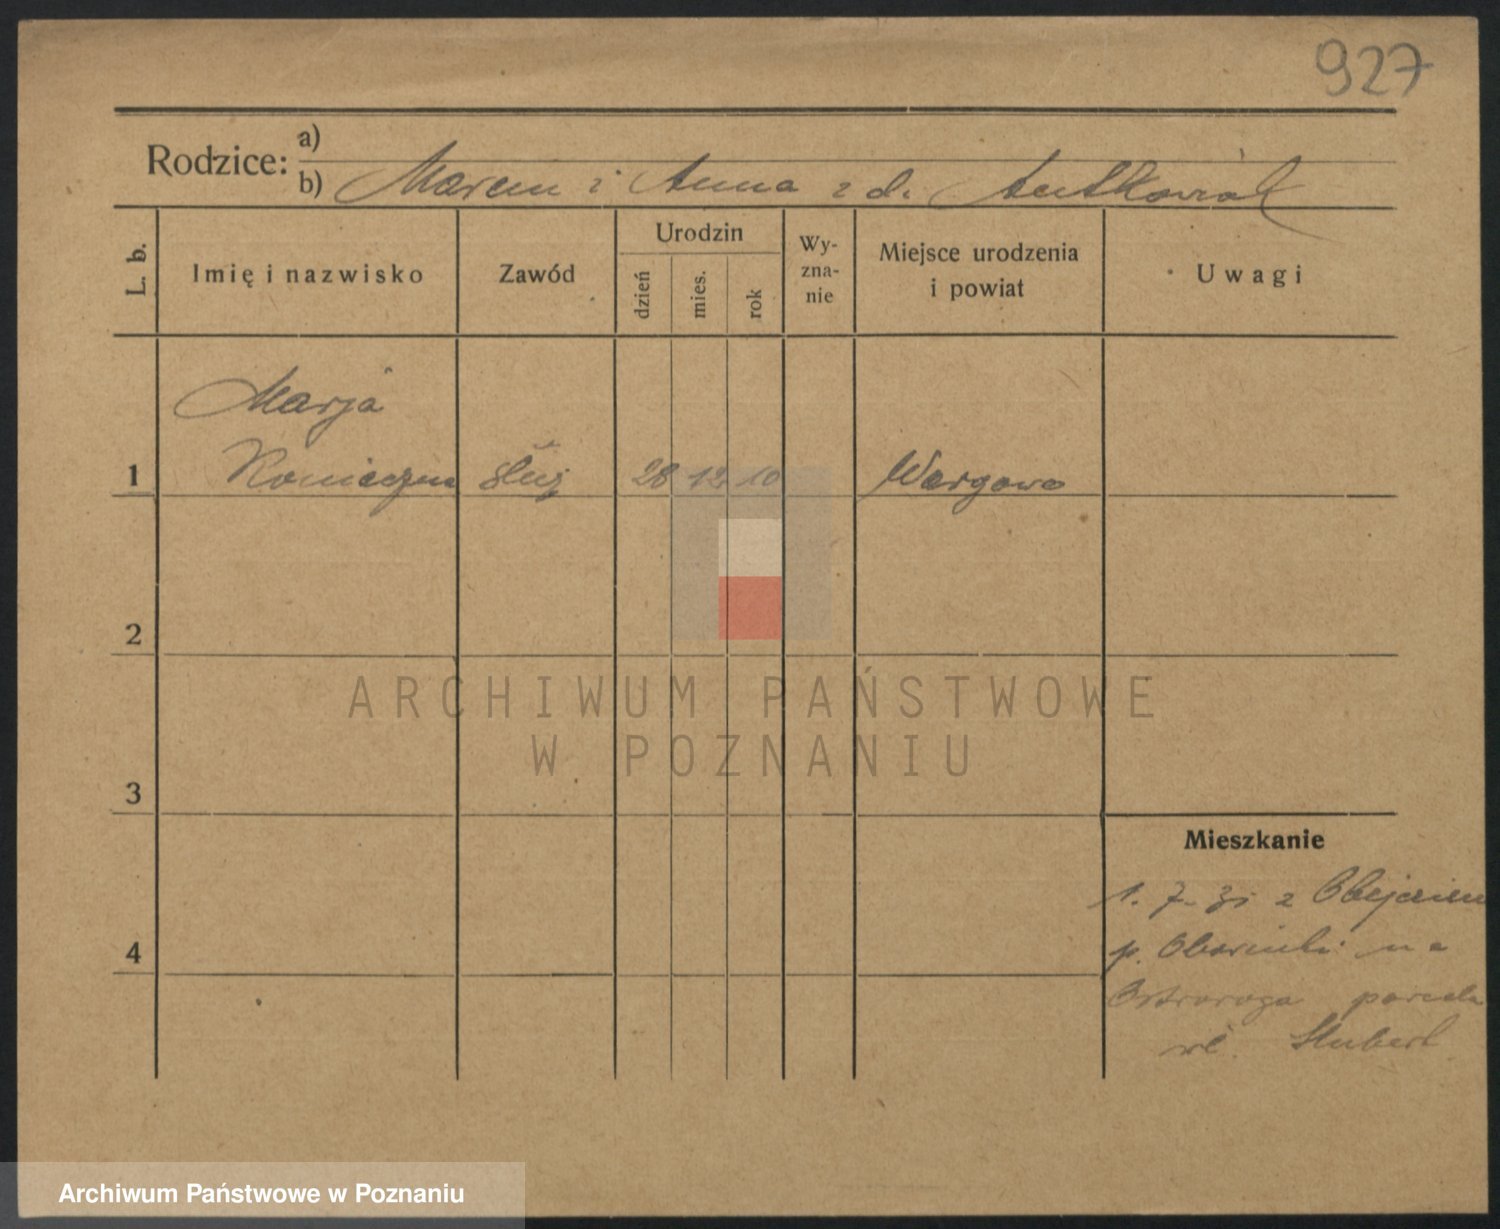 927
Rodzice:
a)
b) Marcin i Anna z d. Antkowiak
L. b.
Imię i nazwisko
Zawód
Urodzin
dzień
mies.
rok
Wy-
zna-
nie
Miejsce urodzenia
i powiat
Uwagi
Marja
1 Konieczna służ 28 12 10 Wargowo
2
3
4
Mieszkanie
1. 7. z
p. Oborniki na
Ostroroga parcela
wł. Hubert
ARCHIWUM PAŃSTWOWE
W POZNANIU
Archiwum Państwowe w Poznaniu